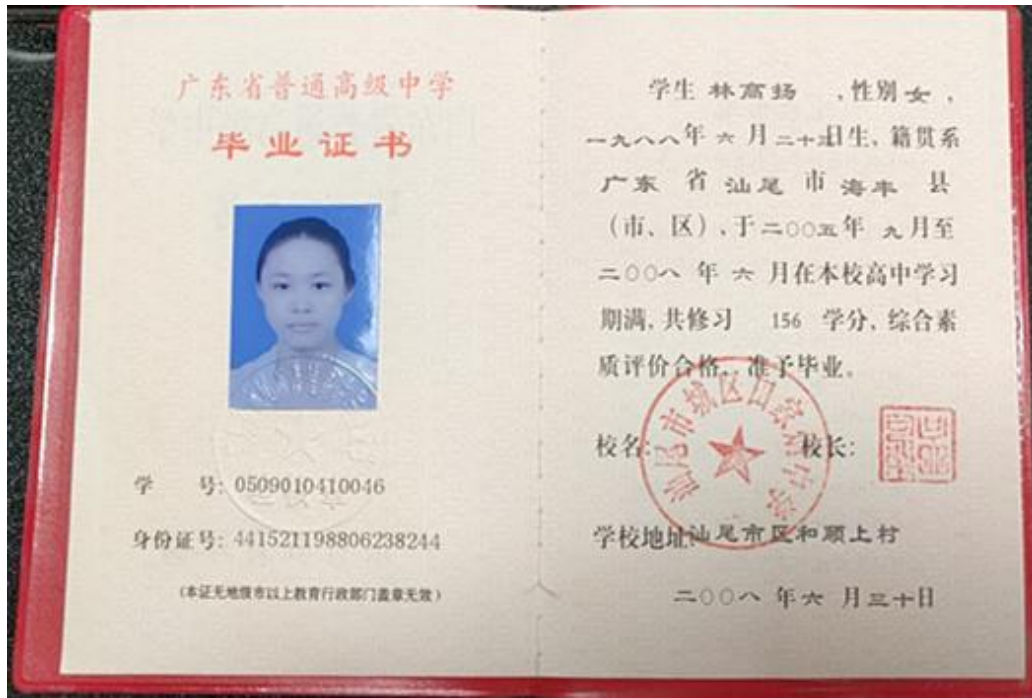 广东省普通高级中学
毕业证书
学 号: 0509010410046
身份证号: 441521198806238244
(本证无地级市以上教育行政部门盖章无效)
学生 林高扬 ,性别 女 ,
一九八八年 六 月 二十三日生、籍贯系
广东 省 汕尾 市 海丰 县
(市、区),于二〇〇五年 九月至
二〇〇八 年 六 月在本校高中学习
期满,共修习 156 学分,综合素
质评价合格,准予毕业。
校名: 校长:
汕尾市城区田家炳中学
学校地址:汕尾市区和顺上村
二〇〇八 年六 月三十日